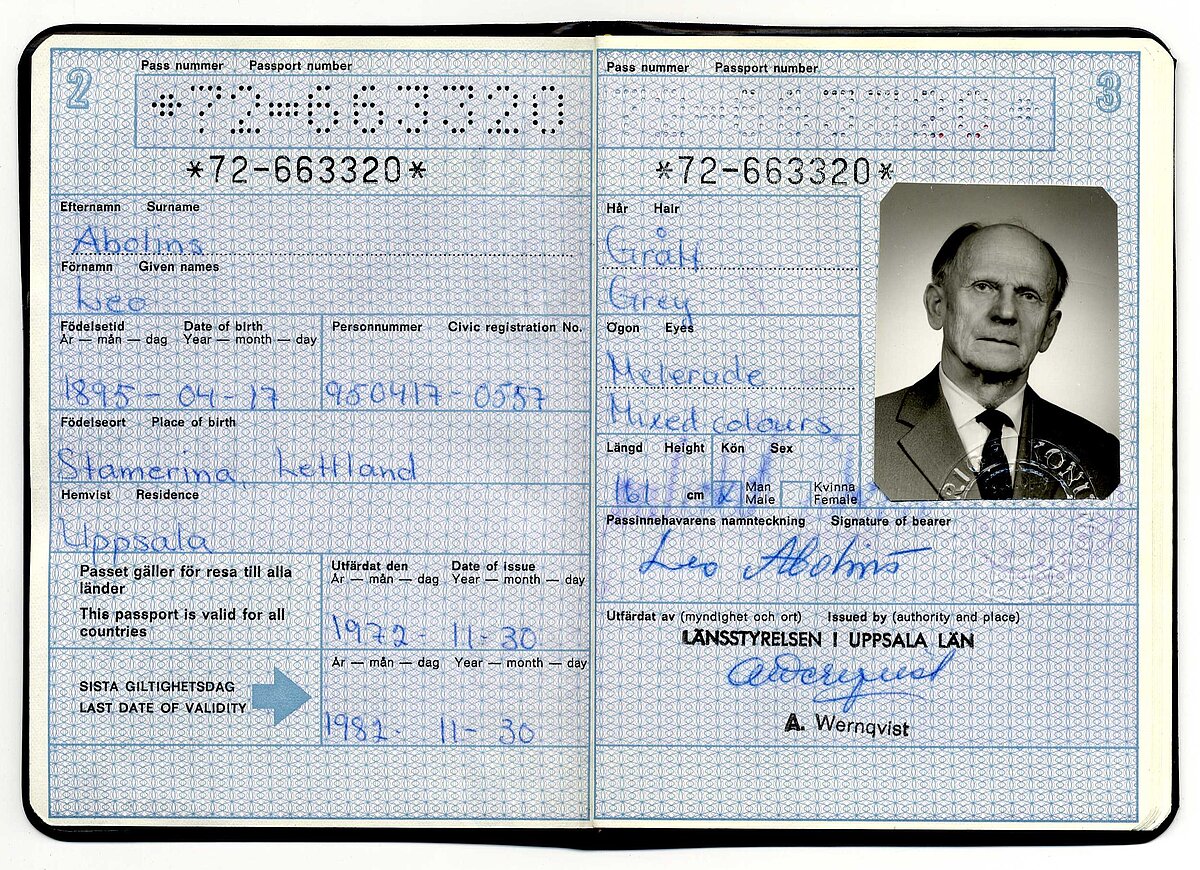 2
Pass nummer Passport number
*72-663320
*72-663320*
Efternamn Surname
Abolins
Förnamn Given names
Leo
Födelsetid Date of birth
År — mån — dag Year — month — day
1895 - 04 - 17
Personnummer Civic registration No.
950417 - 0557
Födelseort Place of birth
Stamerina, Lettland
Hemvist Residence
Uppsala
Passet gäller för resa till alla
länder
This passport is valid for all
countries
Utfärdat den Date of issue
År — mån — dag Year — month — day
1972 - 11 - 30
SISTA GILTIGHETSDAG
LAST DATE OF VALIDITY
År — mån — dag Year — month — day
1982 - 11 - 30
3
Pass nummer Passport number
*72-663320*
Hår Hair
Grått
Grey
Ögon Eyes
Melerade
Mixed colours
Längd Height
161 cm
Kön Sex
x Man
Male
Kvinna
Female
Passinnehavarens namnteckning Signature of bearer
Leo Abolins
Utfärdat av (myndighet och ort) Issued by (authority and place)
LÄNSSTYRELSEN I UPPSALA LÄN
A. Wernqvist